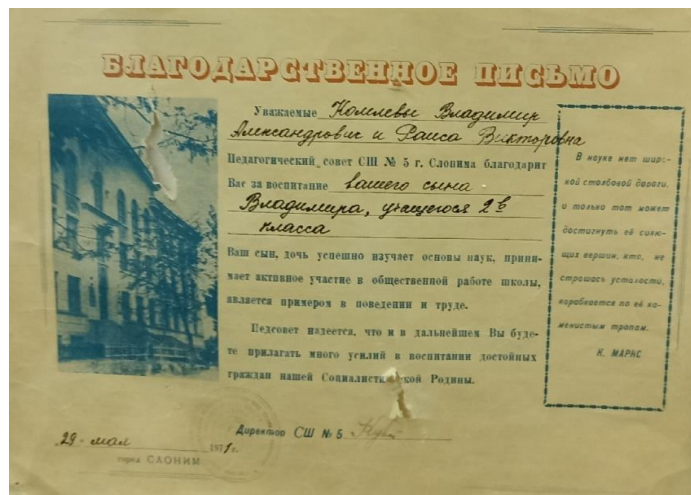 БЛАГОДАРСТВЕННОЕ ПИСЬМО
Уважаемые Комлевы Владимир
Александрович и Раиса Викторовна
Педагогический совет СШ № 5 г. Слонима благодарит
Вас за воспитание вашего сына
Владимира, учащегося 2в
класса
Ваш сын, дочь успешно изучает основы наук, прини-
мает активное участие в общественной работе школы,
является примером в поведении и труде.
Педсовет надеется, что и в дальнейшем Вы буде-
те прилагать много усилий в воспитании достойных
граждан нашей Социалистической Родины.
Директор СШ № 5
29 мая 1971 г.
город СЛОНИМ
В науке нет широ-
кой столбовой дороги,
и только тот может
достигнуть её сияю-
щих вершин, кто, не
страшась усталости,
карабкается по её ка-
менистым тропам.
К. МАРКС